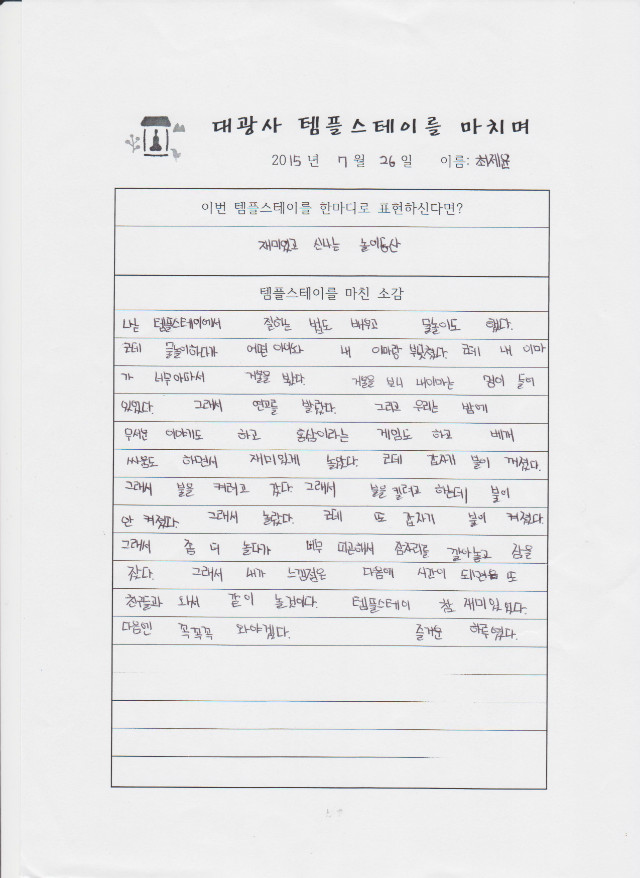 대광사 템플스테이를 마치며
2015년 7월 26일 이름: 최제윤
이번 템플스테이를 한마디로 표현하신다면?
재미있고 신나는 놀이동산
템플스테이를 마친 소감
나는 템플스테이에서 절하는 법도 배우고 물놀이도 했다.
근데 물놀이하다가 어떤 아저씨 내 이마랑 부딪쳤다. 근데 내 이마
가 너무아파서 거울을 봤다. 거울을 보니 내이마는 멍이 들어
있었다. 그래서 연고를 발랐다. 그리고 우리는 밤에
무서운 이야기도 하고 홍삼이라는 게임도 하고 베개
싸움도 하면서 재미있게 놀았다. 근데 갑자기 불이 꺼졌다.
그래서 불을 켜려고 갔다. 그래서 불을 킬려고 하는데 불이
안 켜졌다. 그래서 놀랐다. 근데 또 갑자기 불이 켜졌다.
그래서 좀 더 놀다가 너무 피곤해서 잠자리를 깔아놓고 잠을
잤다. 그래서 내가 느낀점은 다음에 시간이 되면 또
친구들과 와서 같이 놀것이다. 템플스테이 참 재미있었다.
다음엔 꼭꼭꼭 와야겠다. 즐거운 하루였다.